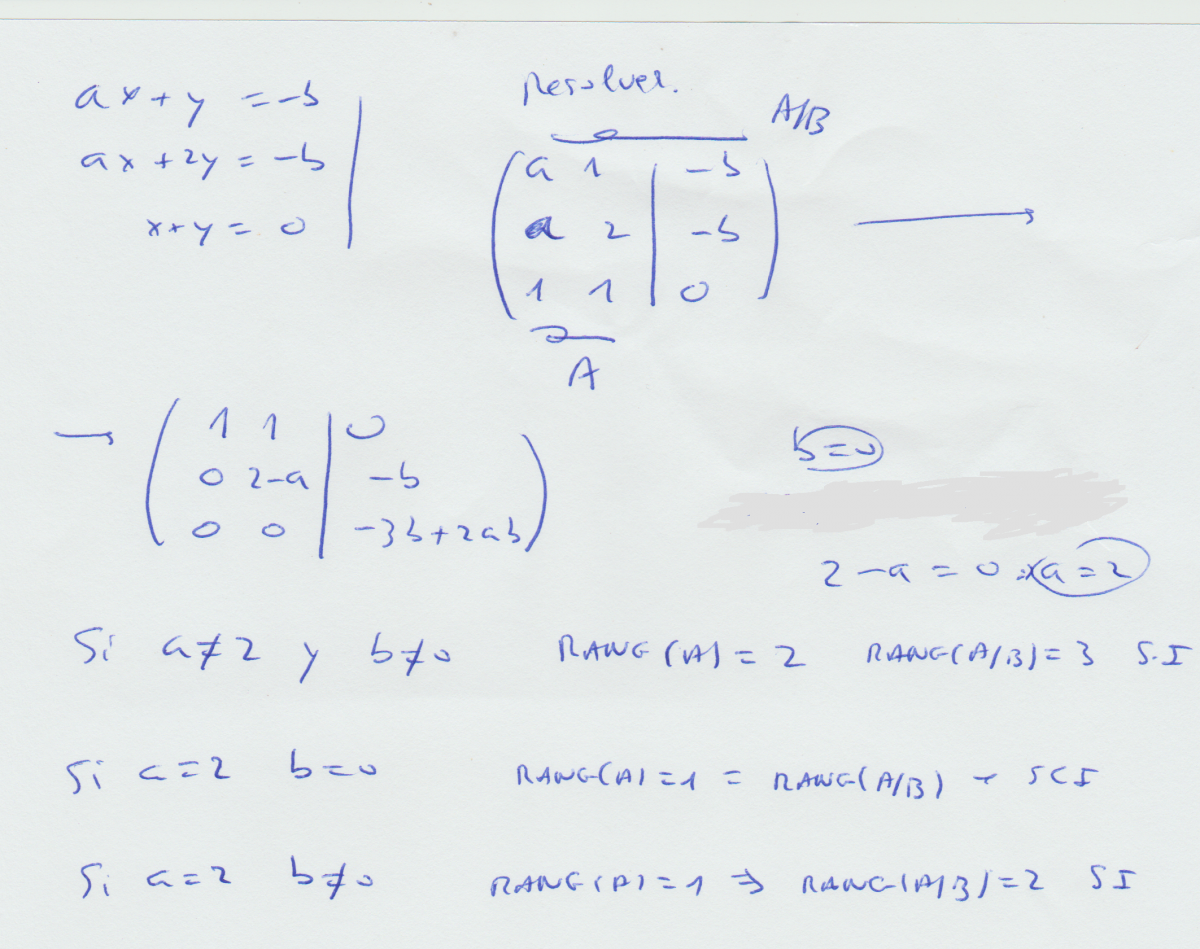 Resolver.
ax + y = -b
ax + 2y = -b
x + y = 0
A/B
a 1 | -b
a 2 | -b
1 1 | 0
A
→
→
1 1 | 0
0 2-a | -b
0 0 | -3b + 2ab
b = 0
2 - a = 0 a = 2
Si a ≠ 2 y b ≠ 0 RANG (A) = 2 RANG (A/B) = 3 S.I
Si a = 2 b = 0 RANG (A) = 1 = RANG (A/B) → SCI
Si a = 2 b ≠ 0 RANG (A) = 1 ⇒ RANG (A/B) = 2 SI